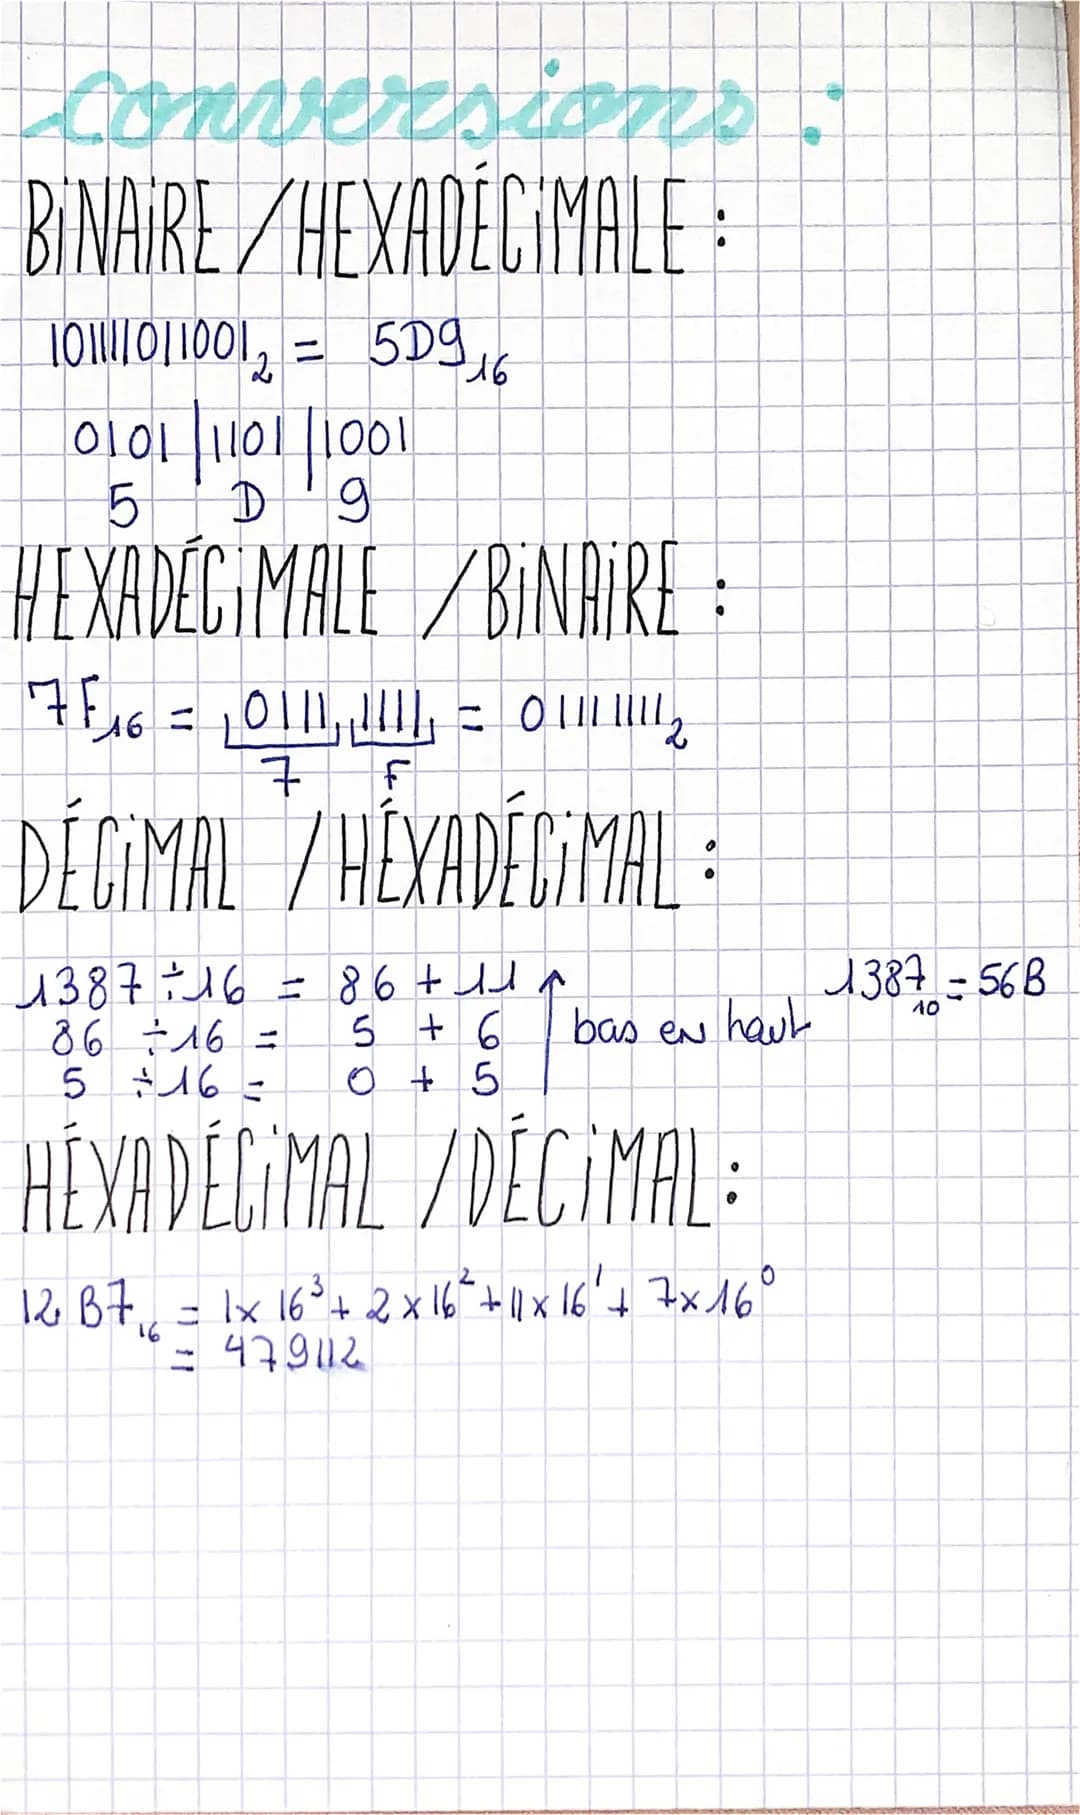 conversions :
BINAIRE / HEXADÉCIMALE :
101111011001₂ = 5D9₁₆
0101 | 1101 | 1001
5 D 9
HEXADÉCIMALE / BINAIRE :
7F₁₆ = 0111 1111 = 01111111₂
7 F
DÉCIMAL / HÉXADÉCIMAL :
1387 ÷ 16 = 86 + 11 ↑ 1387₁₀ = 56B
86 ÷ 16 = 5 + 6 bas en haut
5 ÷ 16 = 0 + 5
HÉXADÉCIMAL / DÉCIMAL :
12B7₁₆ = 1 x 16³ + 2 x 16² + 11 x 16¹ + 7 x 16⁰
= 479112